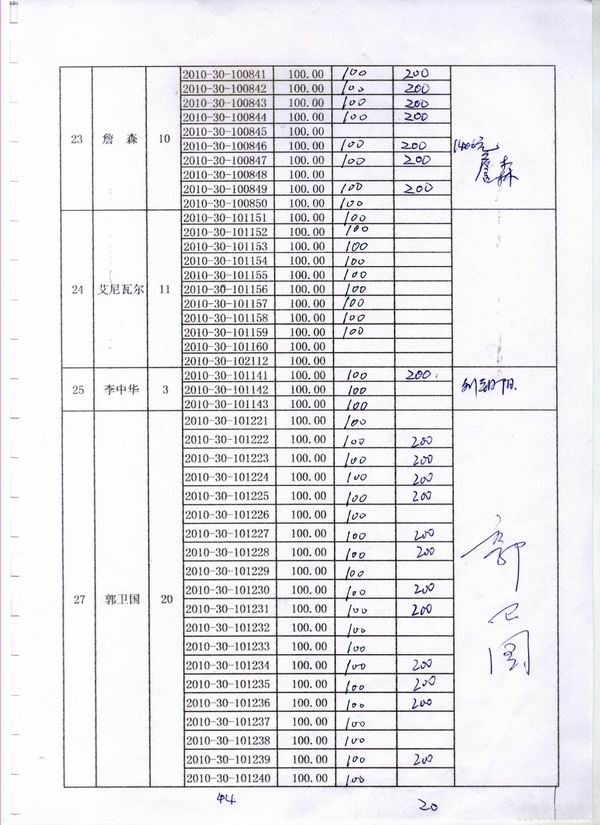 2010-30-100841 100.00 100 200
2010-30-100842 100.00 100 200
2010-30-100843 100.00 100 200
2010-30-100844 100.00 100 200
2010-30-100845 100.00
23 詹 森 10 2010-30-100846 100.00 100 200 1400元
2010-30-100847 100.00 100 200 詹森
2010-30-100848 100.00
2010-30-100849 100.00 100 200
2010-30-100850 100.00 100
2010-30-101151 100.00 100
2010-30-101152 100.00 100
2010-30-101153 100.00 100
2010-30-101154 100.00 100
2010-30-101155 100.00 100
24 艾尼瓦尔 11 2010-30-101156 100.00 100
2010-30-101157 100.00 100
2010-30-101158 100.00 100
2010-30-101159 100.00 100
2010-30-101160 100.00
2010-30-102112 100.00
2010-30-101141 100.00 100 200
25 李中华 3 2010-30-101142 100.00 100
2010-30-101143 100.00 100
2010-30-101221 100.00 100
2010-30-101222 100.00 100 200
2010-30-101223 100.00 100 200
2010-30-101224 100.00 100 200
2010-30-101225 100.00 100 200
2010-30-101226 100.00 100
2010-30-101227 100.00 100 200
2010-30-101228 100.00 100 200
2010-30-101229 100.00 100
2010-30-101230 100.00 100 200
27 郭卫国 20 2010-30-101231 100.00 100 200 郭卫国
2010-30-101232 100.00 100
2010-30-101233 100.00 100
2010-30-101234 100.00 100 200
2010-30-101235 100.00 100 200
2010-30-101236 100.00 100 200
2010-30-101237 100.00 100
2010-30-101238 100.00 100
2010-30-101239 100.00 100 200
2010-30-101240 100.00 100
44 20